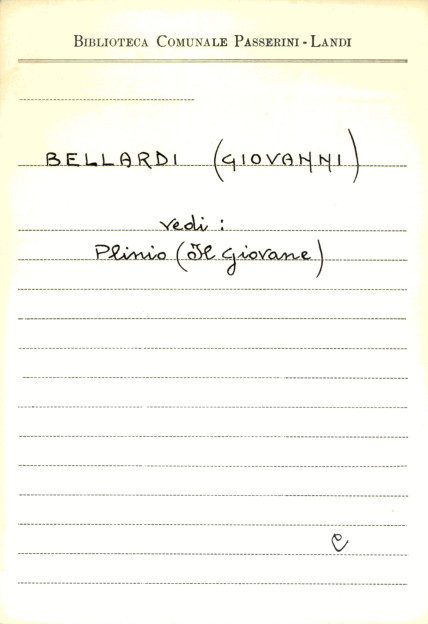 BIBLIOTECA COMUNALE PASSERINI - LANDI
BELLARDI (GIOVANNI)
vedi :
Plinio (Il Giovane)